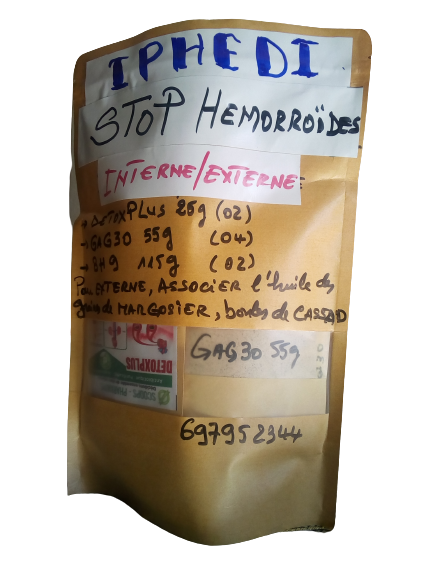 IPHEDI
STOP HEMORROÏDES
INTERNE/EXTERNE
→ DETOXPLUS 25g (02)
→ GAG30 55g (04)
→ SH9 115g (02)
Pour EXTERNE, ASSOCIER l'huile des
graines de MARGOSIER, bordes de CASSAD
GAG30 55g
DETOXPLUS
697952344